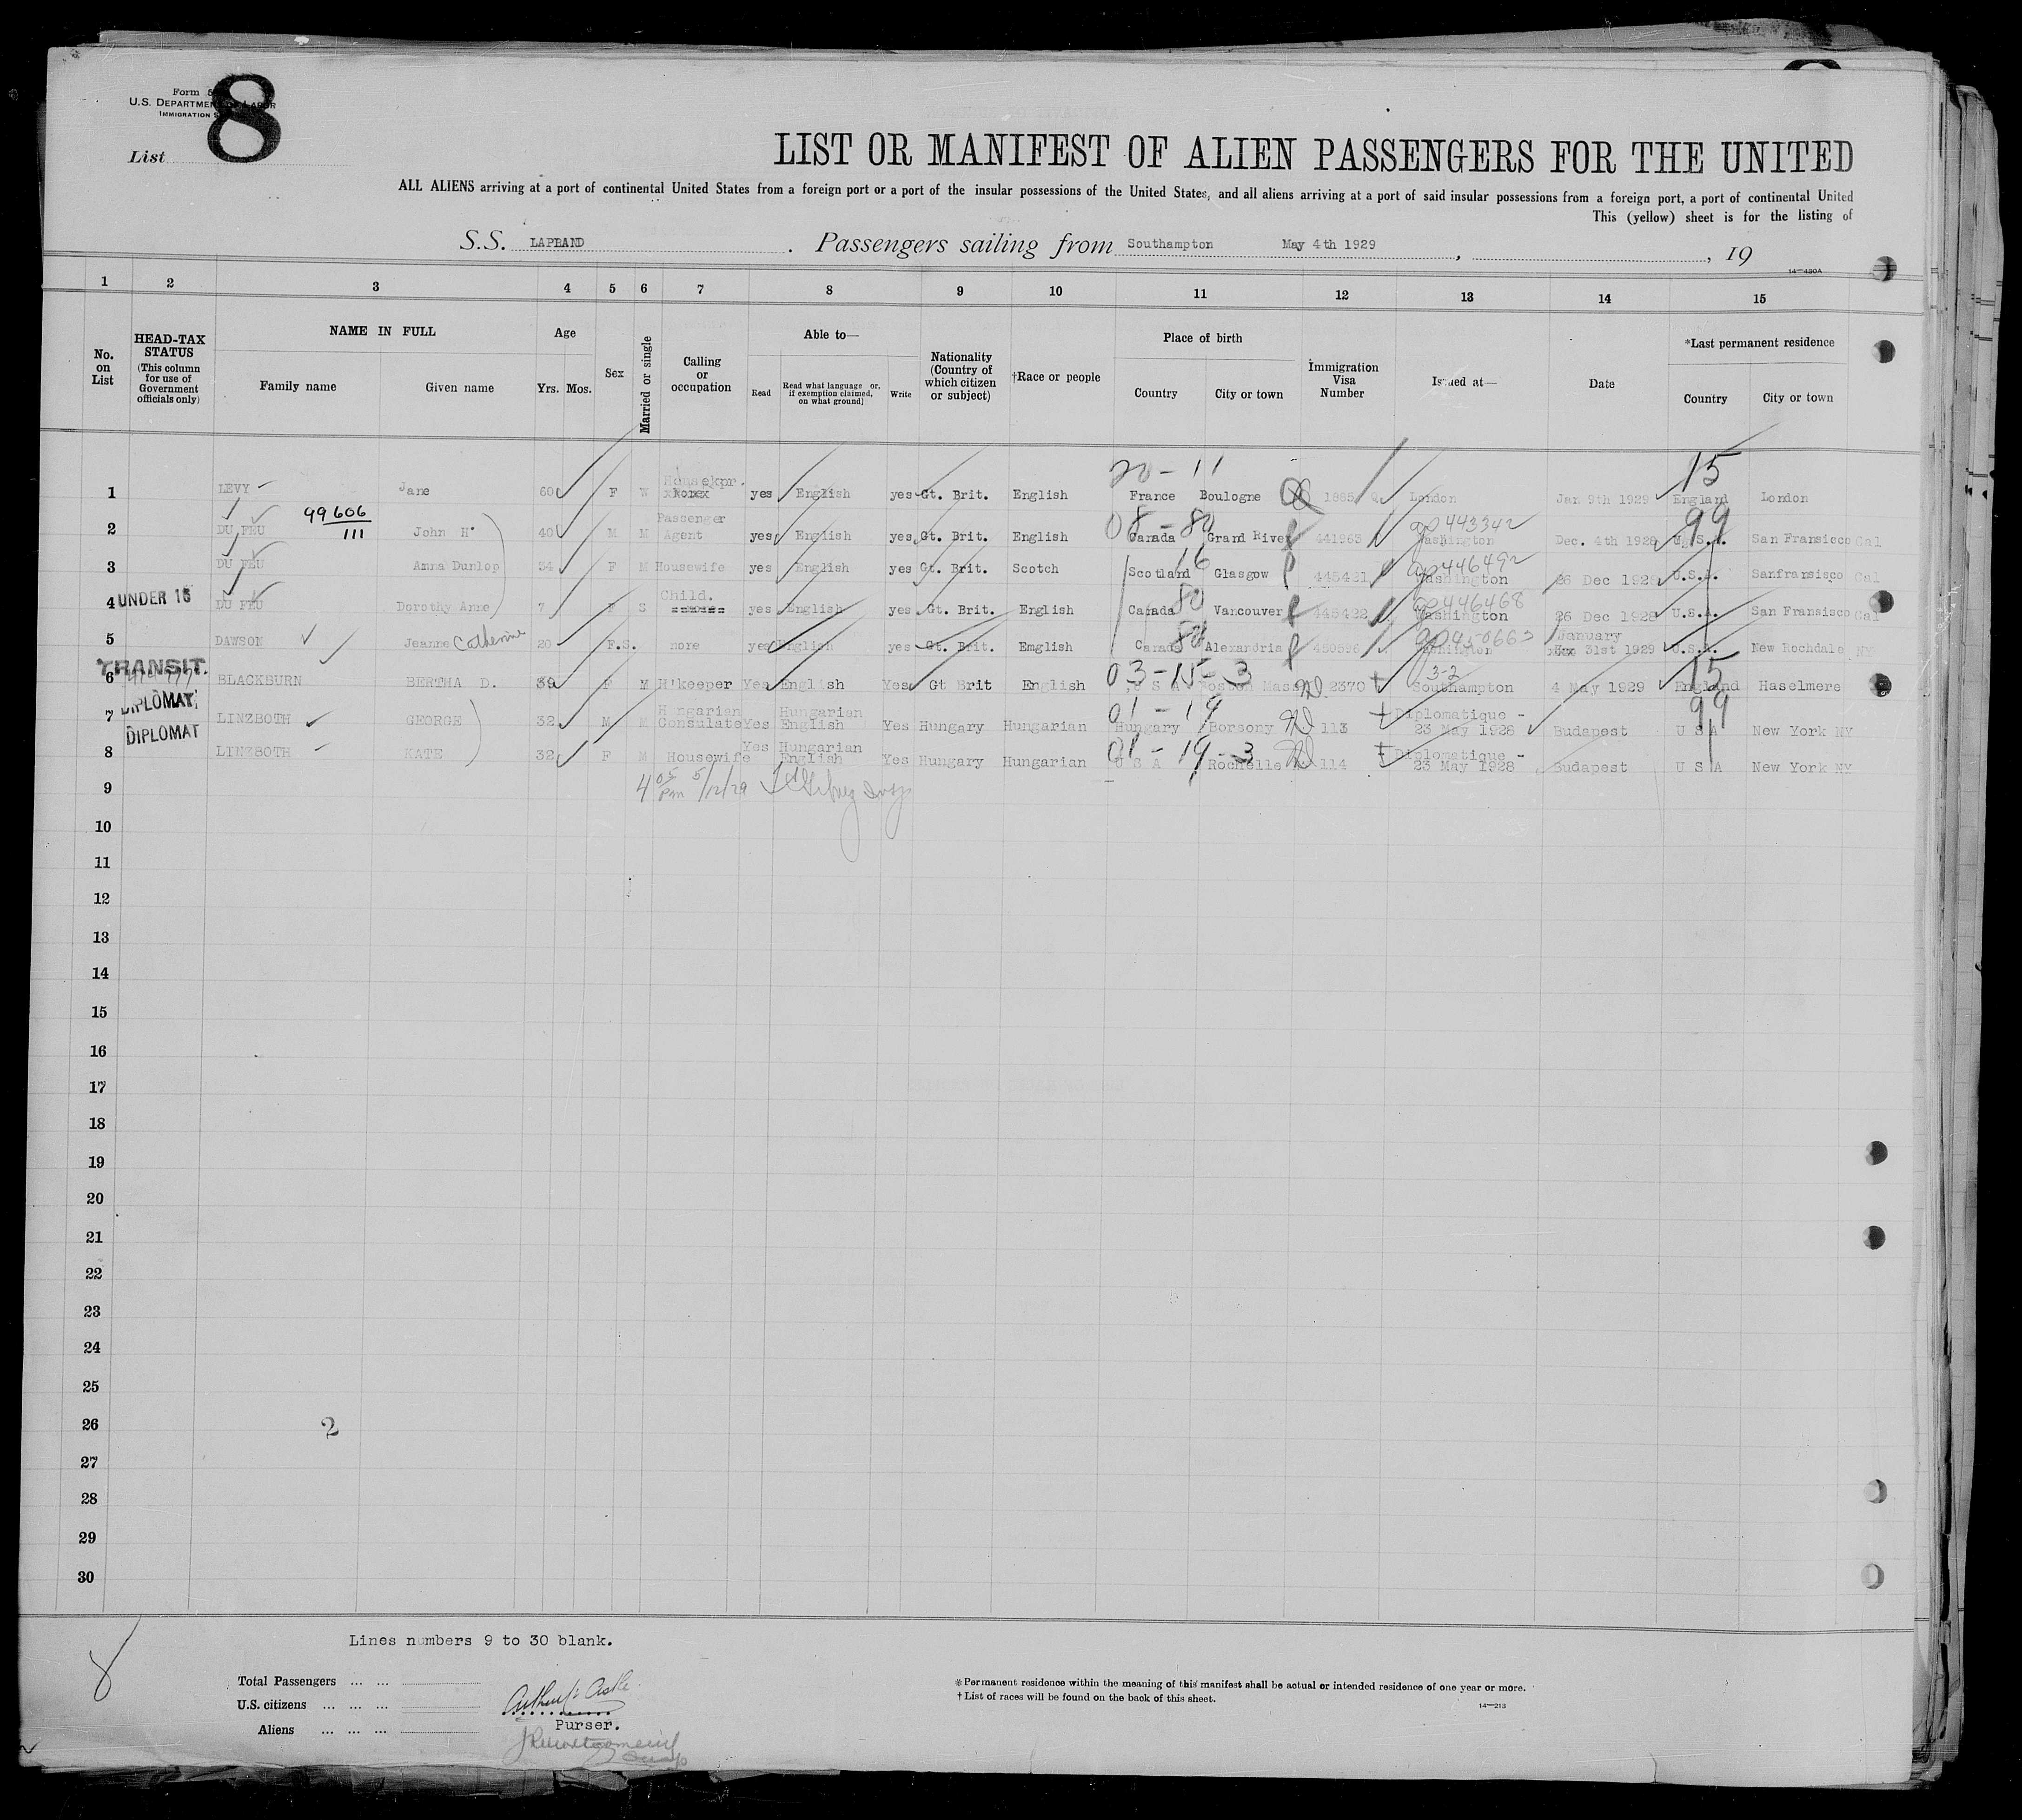 Form 5
U.S. DEPARTMENT OF LABOR
IMMIGRATION S
List 8
LIST OR MANIFEST OF ALIEN PASSENGERS FOR THE UNITED
ALL ALIENS arriving at a port of continental United States from a foreign port or a port of the insular possessions of the United States, and all aliens arriving at a port of said insular possessions from a foreign port, a port of continental United
This (yellow) sheet is for the listing of
S.S. LAPLAND. Passengers sailing from Southampton May 4th 1929, , 19
14—430A
1 2 3 4 5 6 7 8 9 10 11 12 13 14 15
No. on List
HEAD-TAX STATUS (This column for use of Government officials only)
NAME IN FULL Family name Given name
Age Yrs. Mos.
Sex
Married or single
Calling or occupation
Able to— Read Read what language or, if exemption claimed, on what ground] Write
Nationality (Country of which citizen or subject)
†Race or people
Place of birth Country City or town
Immigration Visa Number
Issued at—
Date
*Last permanent residence Country City or town
20 - 11 15
1 LEVY Jane 60 F W Housekpr. yes English yes Gt. Brit. English France Boulogne 1885 Q London Jan 9th 1929 England London
99606 111 08 - 80 go 443342 99
2 DU FEU John H. 40 M M Passenger Agent yes English yes Gt. Brit. English Canada Grand River 441963 Washington Dec. 4th 1928 U.S.A. San Fransisco Cal
16 go 446492
3 DU FEU Anna Dunlop 34 F M Housewife yes English yes Gt. Brit. Scotch Scotland Glasgow 445421 Washington 26 Dec 1928 U.S.A. Sanfransisco Cal
80 go 446468
4 UNDER 16 DU FEU Dorothy Anne 7 F S Child. yes English yes Gt. Brit. English Canada Vancouver 445422 Washington 26 Dec 1928 U.S.A. San Fransisco Cal
80 go 450663
5 DAWSON Jeanne Catherine 20 F.S. none yes English yes Gt. Brit. Emglish Canada Alexandria 450596 Washington January 31st 1929 U.S.A. New Rochdale NY
TRANSIT. 03-15-3 3-2 15
6 BLACKBURN BERTHA D. 39 F M H'keeper Yes English Yes Gt Brit English U S A Boston Mass 2370 Southampton 4 May 1929 England Haselmere
DIPLOMAT 01 - 19 99
7 LINZBOTH GEORGE 32 M M Hungarian Consulate Yes Hungarian English Yes Hungary Hungarian Hungary Borsony 113 Diplomatique - 23 May 1928 Budapest U S A New York NY
DIPLOMAT 01 - 19 - 3
8 LINZBOTH KATE 32 F M Housewife Yes Hungarian English Yes Hungary Hungarian U S A Rochelle 114 Diplomatique - 23 May 1928 Budapest U S A New York NY
9 4 05 pm 5/12/29
10
11
12
13
14
15
16
17
18
19
20
21
22
23
24
25
26 2
27
28
29
30
8
Lines numbers 9 to 30 blank.
Total Passengers ... ...
U.S. citizens ... ... ...
Aliens ... ... ...
Purser.
* Permanent residence within the meaning of this manifest shall be actual or intended residence of one year or more.
† List of races will be found on the back of this sheet.
14—213